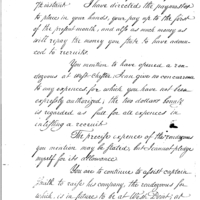 instant. I have directed the paymaster
to place in your hands, your pay up to the first
of the present month, and also as much money as
will repay the money you state to have advan-
ced to recruits.
You mention to have opened a ren-
dezvous at West-chester. I can give no concurrence
to any expences for which you have not been
expressly authorized; the two dollars bounty
is regarded as full for all expences in
enlisting a recruit.
The precise expences of the rendezvous
you mention may be stated, but I cannot pledge
myself for its allowance.
You are to continue to assist captain
Smith to raise his company, the rendezvous for
which, is in future to be at West Point, at